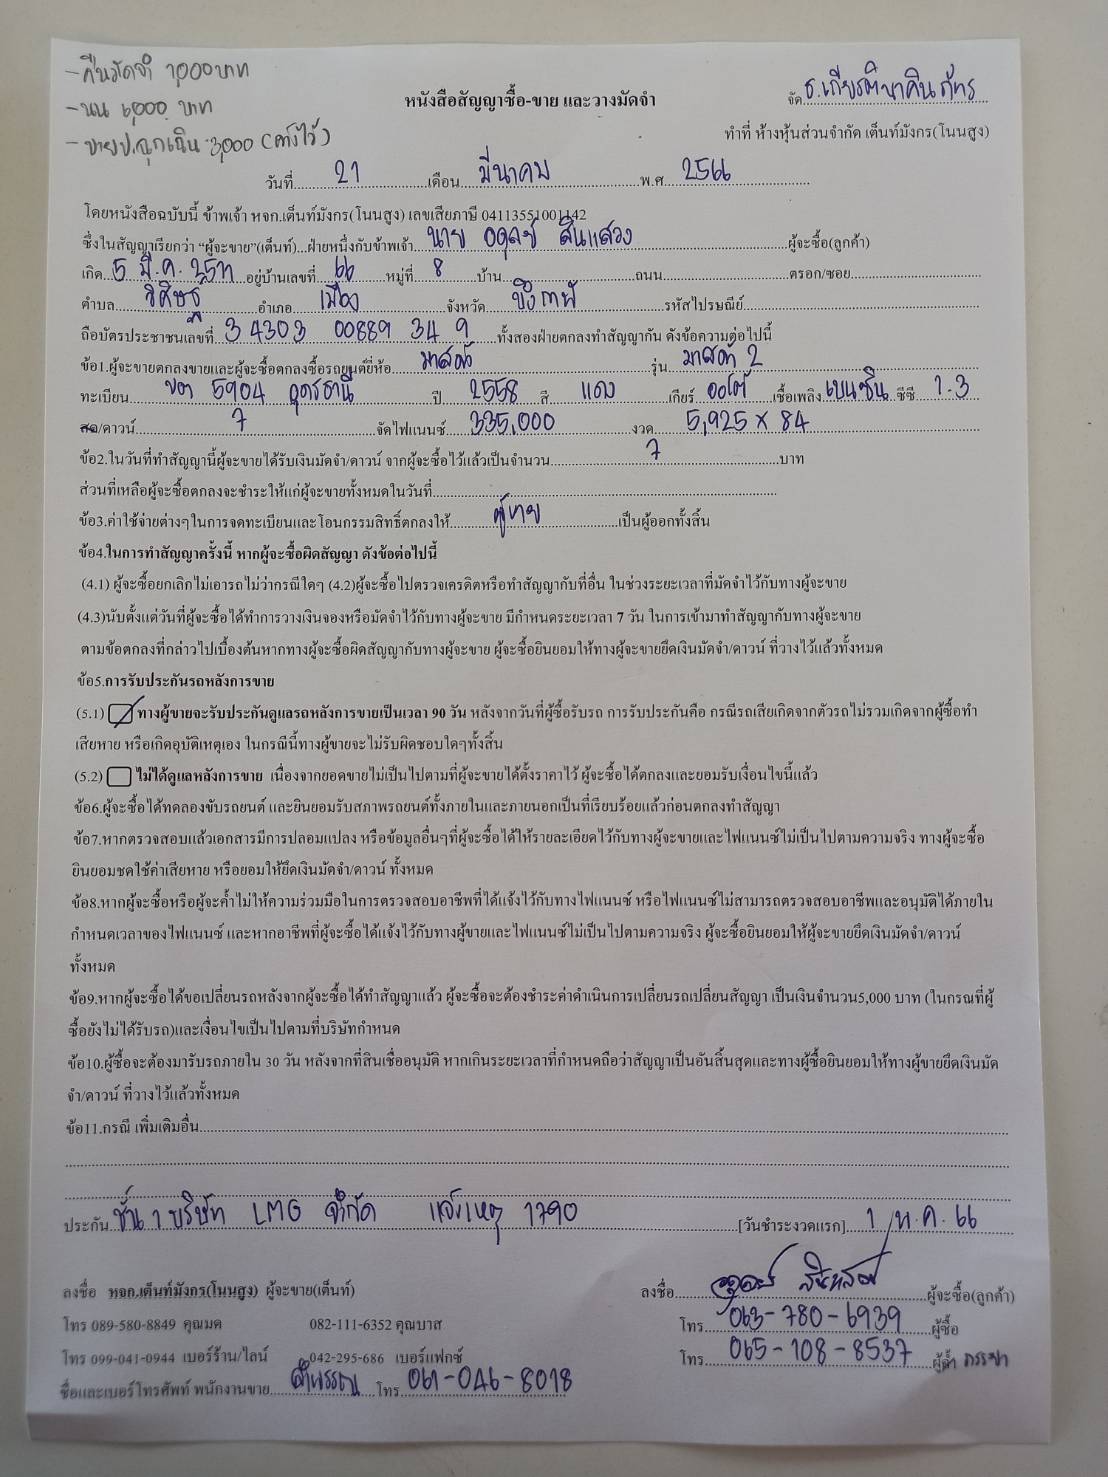 - คืนมัดจำ 1,000 บาท
- นน 6,000 บาท
- ขายป.ฉุกเฉิน 3,000 (ค้างไว้)
หนังสือสัญญาซื้อ-ขาย และวางมัดจำ
จัด ธ.เกียรตินาคินภัทร
ทำที่ ห้างหุ้นส่วนจำกัด เต็นท์มังกร(โนนสูง)
วันที่ 21 เดือน มีนาคม พ.ศ. 2566
โดยหนังสือฉบับนี้ ข้าพเจ้า หจก.เต็นท์มังกร(โนนสูง) เลขเสียภาษี 04113551001142
ซึ่งในสัญญาเรียกว่า “ผู้จะขาย”(เต็นท์)...ฝ่ายหนึ่งกับข้าพเจ้า นาย อดุลย์ สินแสวง ผู้จะซื้อ(ลูกค้า)
เกิด 5 มี.ค. 2511 อยู่บ้านเลขที่ 66 หมู่ที่ 8 บ้าน ถนน ตรอก/ซอย
ตำบล วิศิษฐ์ อำเภอ เมือง จังหวัด บึงกาฬ รหัสไปรษณีย์
ถือบัตรประชาชนเลขที่ 3 4303 00889 34 9 ทั้งสองฝ่ายตกลงทำสัญญากัน ดังข้อความต่อไปนี้
ข้อ1.ผู้จะขายตกลงขายและผู้จะซื้อตกลงซื้อรถยนต์ยี่ห้อ มาสด้า รุ่น มาสด้า 2
ทะเบียน ขต 5904 อุดรธานี ปี 2558 สี แดง เกียร์ ออโต้ เชื้อเพลิง เบนซิน ซีซี 1.3
สด/ดาวน์ 7 จัดไฟแนนซ์ 335,000 งวด 5,925 x 84
ข้อ2.ในวันที่ทำสัญญานี้ผู้จะขายได้รับเงินมัดจำ/ดาวน์ จากผู้จะซื้อไว้แล้วเป็นจำนวน 7 บาท
ส่วนที่เหลือผู้จะซื้อตกลงจะชำระให้แก่ผู้จะขายทั้งหมดในวันที่
ข้อ3.ค่าใช้จ่ายต่างๆในการจดทะเบียนและโอนกรรมสิทธิ์ตกลงให้ ผู้ขาย เป็นผู้ออกทั้งสิ้น
ข้อ4.ในการทำสัญญาครั้งนี้ หากผู้จะซื้อผิดสัญญา ดังข้อต่อไปนี้
(4.1) ผู้จะซื้อยกเลิกไม่เอารถไม่ว่ากรณีใดๆ (4.2)ผู้จะซื้อไปตรวจเครดิตหรือทำสัญญากับที่อื่น ในช่วงระยะเวลาที่มัดจำไว้กับทางผู้จะขาย
(4.3)นับตั้งแต่วันที่ผู้จะซื้อได้ทำการวางเงินจองหรือมัดจำไว้กับทางผู้จะขาย มีกำหนดระยะเวลา 7 วัน ในการเข้ามาทำสัญญากับทางผู้จะขาย
ตามข้อตกลงที่กล่าวไปเบื้องต้นหากทางผู้จะซื้อผิดสัญญากับทางผู้จะขาย ผู้จะซื้อยินยอมให้ทางผู้จะขายยึดเงินมัดจำ/ดาวน์ ที่วางไว้แล้วทั้งหมด
ข้อ5.การรับประกันรถหลังการขาย
(5.1) ทางผู้ขายจะรับประกันดูแลรถหลังการขายเป็นเวลา 90 วัน หลังจากวันที่ผู้ซื้อรับรถ การรับประกันคือ กรณีรถเสียเกิดจากตัวรถไม่รวมเกิดจากผู้ซื้อทำ
เสียหาย หรือเกิดอุบัติเหตุเอง ในกรณีนี้ทางผู้ขายจะไม่รับผิดชอบใดๆทั้งสิ้น
(5.2) ไม่ได้ดูแลหลังการขาย เนื่องจากยอดขายไม่เป็นไปตามที่ผู้จะขายได้ตั้งราคาไว้ ผู้จะซื้อได้ตกลงและยอมรับเงื่อนไขนี้แล้ว
ข้อ6.ผู้จะซื้อได้ทดลองขับรถยนต์ และยินยอมรับสภาพรถยนต์ทั้งภายในและภายนอกเป็นที่เรียบร้อยแล้วก่อนตกลงทำสัญญา
ข้อ7.หากตรวจสอบแล้วเอกสารมีการปลอมแปลง หรือข้อมูลอื่นๆที่ผู้จะซื้อได้ให้รายละเอียดไว้กับทางผู้จะขายและไฟแนนซ์ไม่เป็นไปตามความจริง ทางผู้จะซื้อ
ยินยอมชดใช้ค่าเสียหาย หรือยอมให้ยึดเงินมัดจำ/ดาวน์ ทั้งหมด
ข้อ8.หากผู้จะซื้อหรือผู้จะค้ำไม่ให้ความร่วมมือในการตรวจสอบอาชีพที่ได้แจ้งไว้กับทางไฟแนนซ์ หรือไฟแนนซ์ไม่สามารถตรวจสอบอาชีพและอนุมัติได้ภายใน
กำหนดเวลาของไฟแนนซ์ และหากอาชีพที่ผู้จะซื้อได้แจ้งไว้กับทางผู้ขายและไฟแนนซ์ไม่เป็นไปตามความจริง ผู้จะซื้อยินยอมให้ผู้จะขายยึดเงินมัดจำ/ดาวน์
ทั้งหมด
ข้อ9.หากผู้จะซื้อได้ขอเปลี่ยนรถหลังจากผู้จะซื้อได้ทำสัญญาแล้ว ผู้จะซื้อจะต้องชำระค่าดำเนินการเปลี่ยนรถเปลี่ยนสัญญา เป็นเงินจำนวน5,000 บาท (ในกรณที่ผู้
ซื้อยังไม่ได้รับรถ)และเงื่อนไขเป็นไปตามที่บริษัทกำหนด
ข้อ10.ผู้ซื้อจะต้องมารับรถภายใน 30 วัน หลังจากที่สินเชื่ออนุมัติ หากเกินระยะเวลาที่กำหนดถือว่าสัญญาเป็นอันสิ้นสุดและทางผู้ซื้อยินยอมให้ทางผู้ขายยึดเงินมัด
จำ/ดาวน์ ที่วางไว้แล้วทั้งหมด
ข้อ11.กรณี เพิ่มเติมอื่น
ประกัน ชั้น 1 บริษัท LMG จำกัด แจ้งเหตุ 1790 [วันชำระงวดแรก] 1 /พ.ค. 66
ลงชื่อ หจก.เต็นท์มังกร(โนนสูง) ผู้จะขาย(เต็นท์)
ลงชื่อ อดุลย์ สินแสวง ผู้จะซื้อ(ลูกค้า)
โทร 089-580-8849 คุณมด 082-111-6352 คุณบาส
โทร 063-780-6939 ผู้ซื้อ
โทร 099-041-0944 เบอร์ร้าน/ไลน์ 042-295-686 เบอร์แฟกซ์
โทร 065-108-8537 ผู้ค้ำ ภรรยา
ชื่อและเบอร์โทรศัพท์ พนักงานขาย โทร 061-046-8018